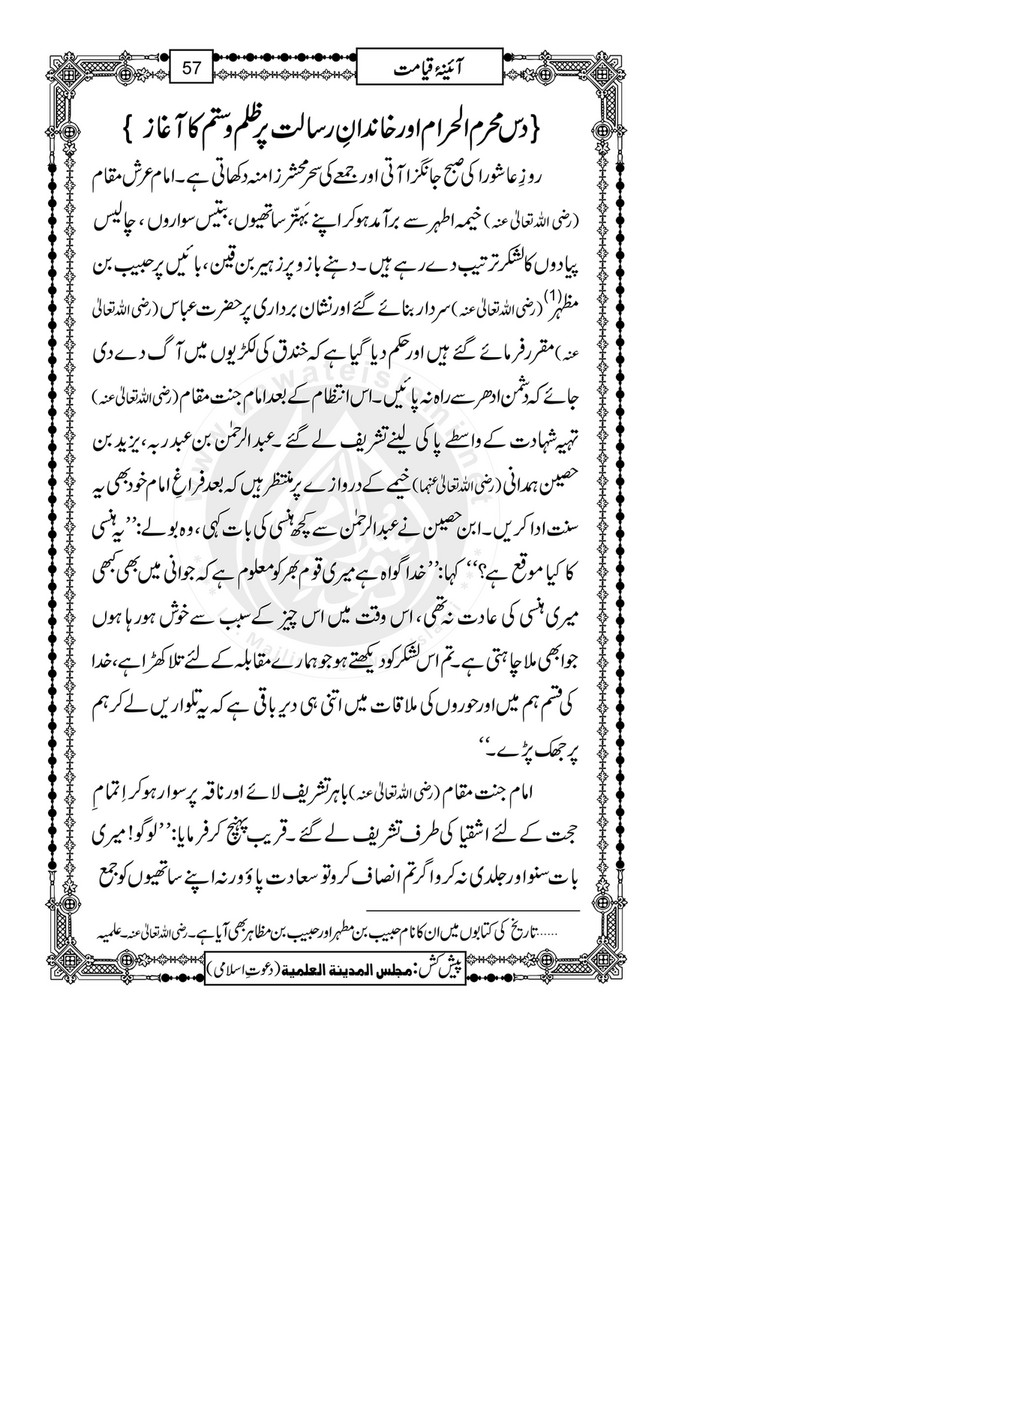 آئینۂ قیامت
57
{دس محرم الحرام اور خاندانِ رسالت پر ظلم وستم کا آغاز }
روزِ عاشورا کی صبح جانگزا آتی اور جمعے کی سحر محشر زا منہ دکھاتی ہے۔ امام عرش مقام
(رضی اللہ تعالیٰ عنہ) خیمہ اطہر سے برآمد ہو کر اپنے بَہتّر ساتھیوں، بتیس سواروں، چالیس
پیادوں کا لشکر ترتیب دے رہے ہیں۔ دہنے بازو پر زہیر بن قین، بائیں پر حبیب بن
مظہر(1) (رضی اللہ تعالیٰ عنہ) سردار بنائے گئے اور نشان برداری پر حضرت عباس (رضی اللہ تعالیٰ
عنہ) مقرر فرمائے گئے ہیں اور حکم دیا گیا ہے کہ خندق کی لکڑیوں میں آگ دے دی
جائے کہ دشمن ادھر سے راہ نہ پائیں۔ اس انتظام کے بعد امام جنت مقام (رضی اللہ تعالیٰ عنہ)
تہیہ شہادت کے واسطے پاکی لینے تشریف لے گئے۔ عبدالرحمٰن بن عبد ربہ، یزید بن
حصین ہمدانی (رضی اللہ تعالیٰ عنہما) خیمے کے دروازے پر منتظر ہیں کہ بعد فراغِ امام خود بھی یہ
سنت ادا کریں۔ ابن حصین نے عبدالرحمٰن سے کچھ ہنسی کی بات کہی، وہ بولے: ’’یہ ہنسی
کا کیا موقع ہے؟‘‘ کہا: ’’خدا گواہ ہے میری قوم بھر کو معلوم ہے کہ جوانی میں بھی کبھی
میری ہنسی کی عادت نہ تھی، اس وقت میں اس چیز کے سبب سے خوش ہو رہا ہوں
جو ابھی ملا چاہتی ہے۔ تم اس لشکر کو دیکھتے ہو جو ہمارے مقابلہ کے لئے تلا کھڑا ہے، خدا
کی قسم ہم میں اور حوروں کی ملاقات میں اتنی ہی دیر باقی ہے کہ یہ تلواریں لے کر ہم
پر جھک پڑے۔‘‘
امام جنت مقام (رضی اللہ تعالیٰ عنہ) باہر تشریف لائے اور ناقہ پر سوار ہو کر اِتمامِ
حجت کے لئے اشقیا کی طرف تشریف لے گئے۔ قریب پہنچ کر فرمایا: ’’لوگو! میری
بات سنو اور جلدی نہ کرو اگر تم انصاف کرو تو سعادت پاؤ ورنہ اپنے ساتھیوں کو جمع
......تاریخ کی کتابوں میں ان کا نام حبیب بن مطہر اور حبیب بن مظاہر بھی آیا ہے۔ رضی اللہ تعالیٰ عنہ۔ علمیہ
پیش کش: مجلس المدینة العلمیة (دعوتِ اسلامی)